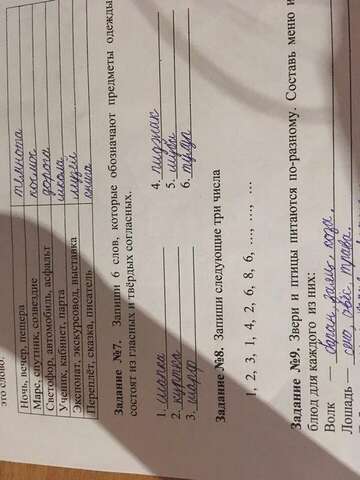 это слово.
Ночь, вечер, пещера темнота
Марс, спутник, созвездие космос
Светофор, автомобиль, асфальт дорога
Ученик, кабинет, парта школа
Экспонат, экскурсовод, выставка музей
Переплёт, сказка, писатель книга
Задание №7. Запиши 6 слов, которые обозначают предметы одежды
состоят из гласных и твёрдых согласных.
1. шапка 4. пиджак
2. куртка 5. шуба
3. шарф 6.
Задание №8. Запиши следующие три числа
1, 2, 3, 1, 4, 2, 6, 8, 6, …, …, …
Задание №9. Звери и птицы питаются по-разному. Составь меню и
блюд для каждого из них:
Волк — заяц, коза,
Лошадь — сено, овёс, трава.